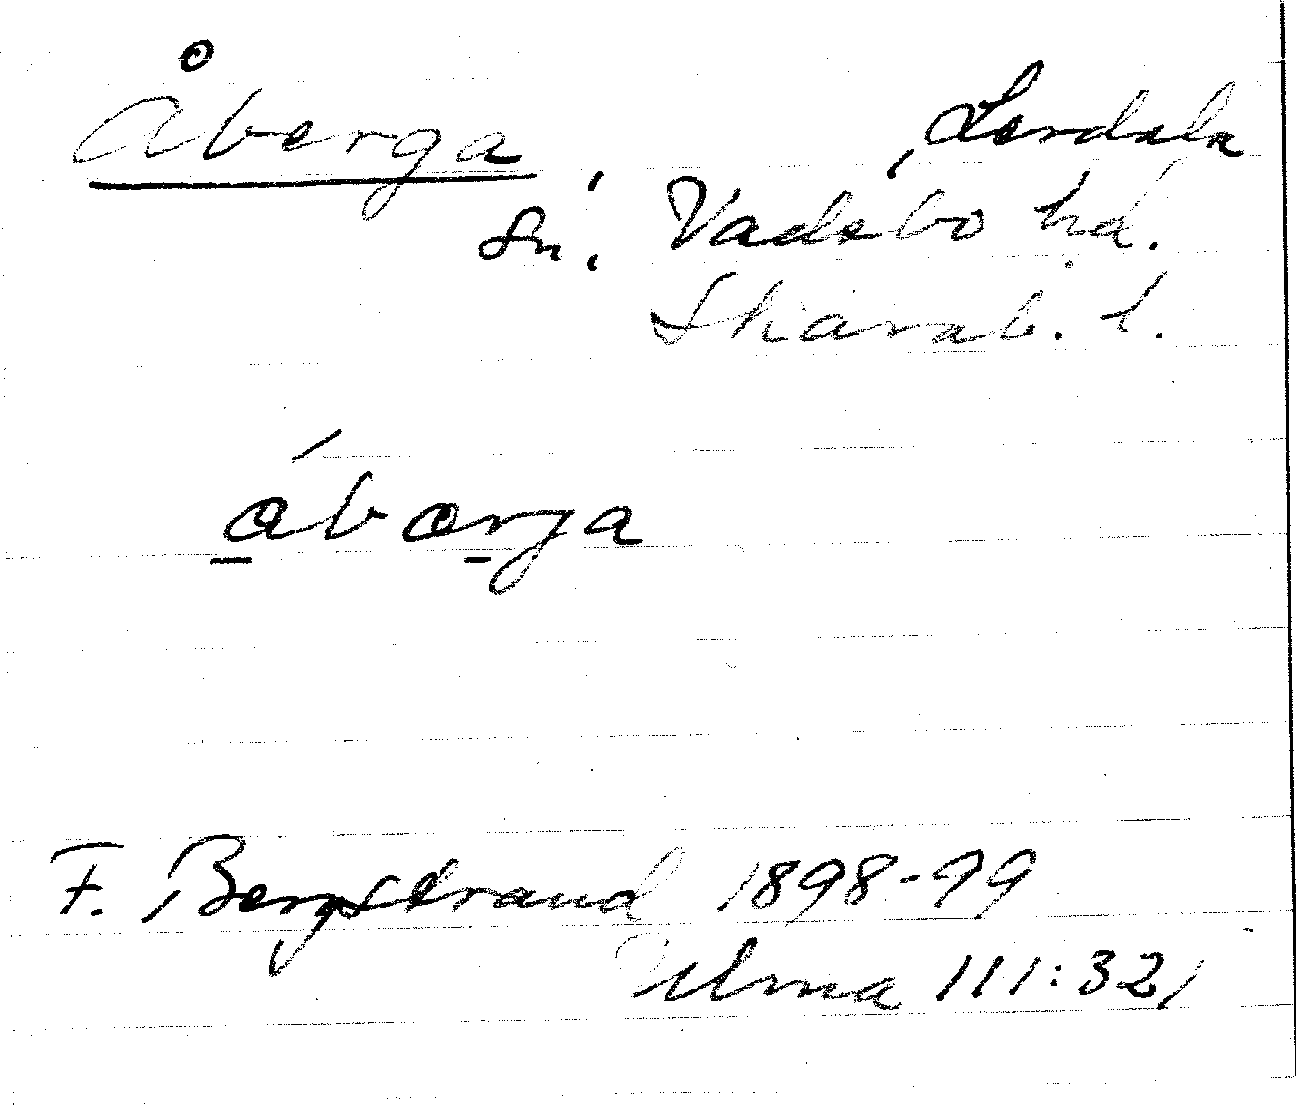 Åberga, Lerdala
sn. Vadsbo hd.
Skarab. l.
åbærga
F. Bergstrand 1898-99
Ulma 111:321